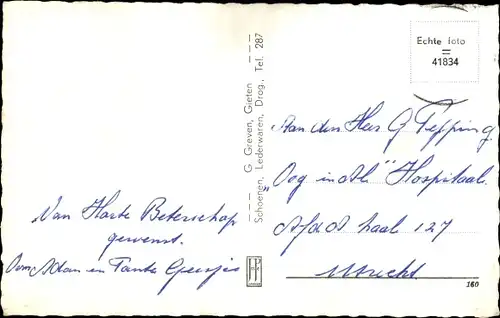 Van Harte Beterschap
gewenst.
Oom Adam en Tante
G. Greven, Gieten
Schoenen, Lederwaren, Drog., Tel. 287
Echte foto
=
41834
Aan den Heer G Tepping
"Oog in Al" Hospitaal
Afd A zaal 127
Utrecht
160